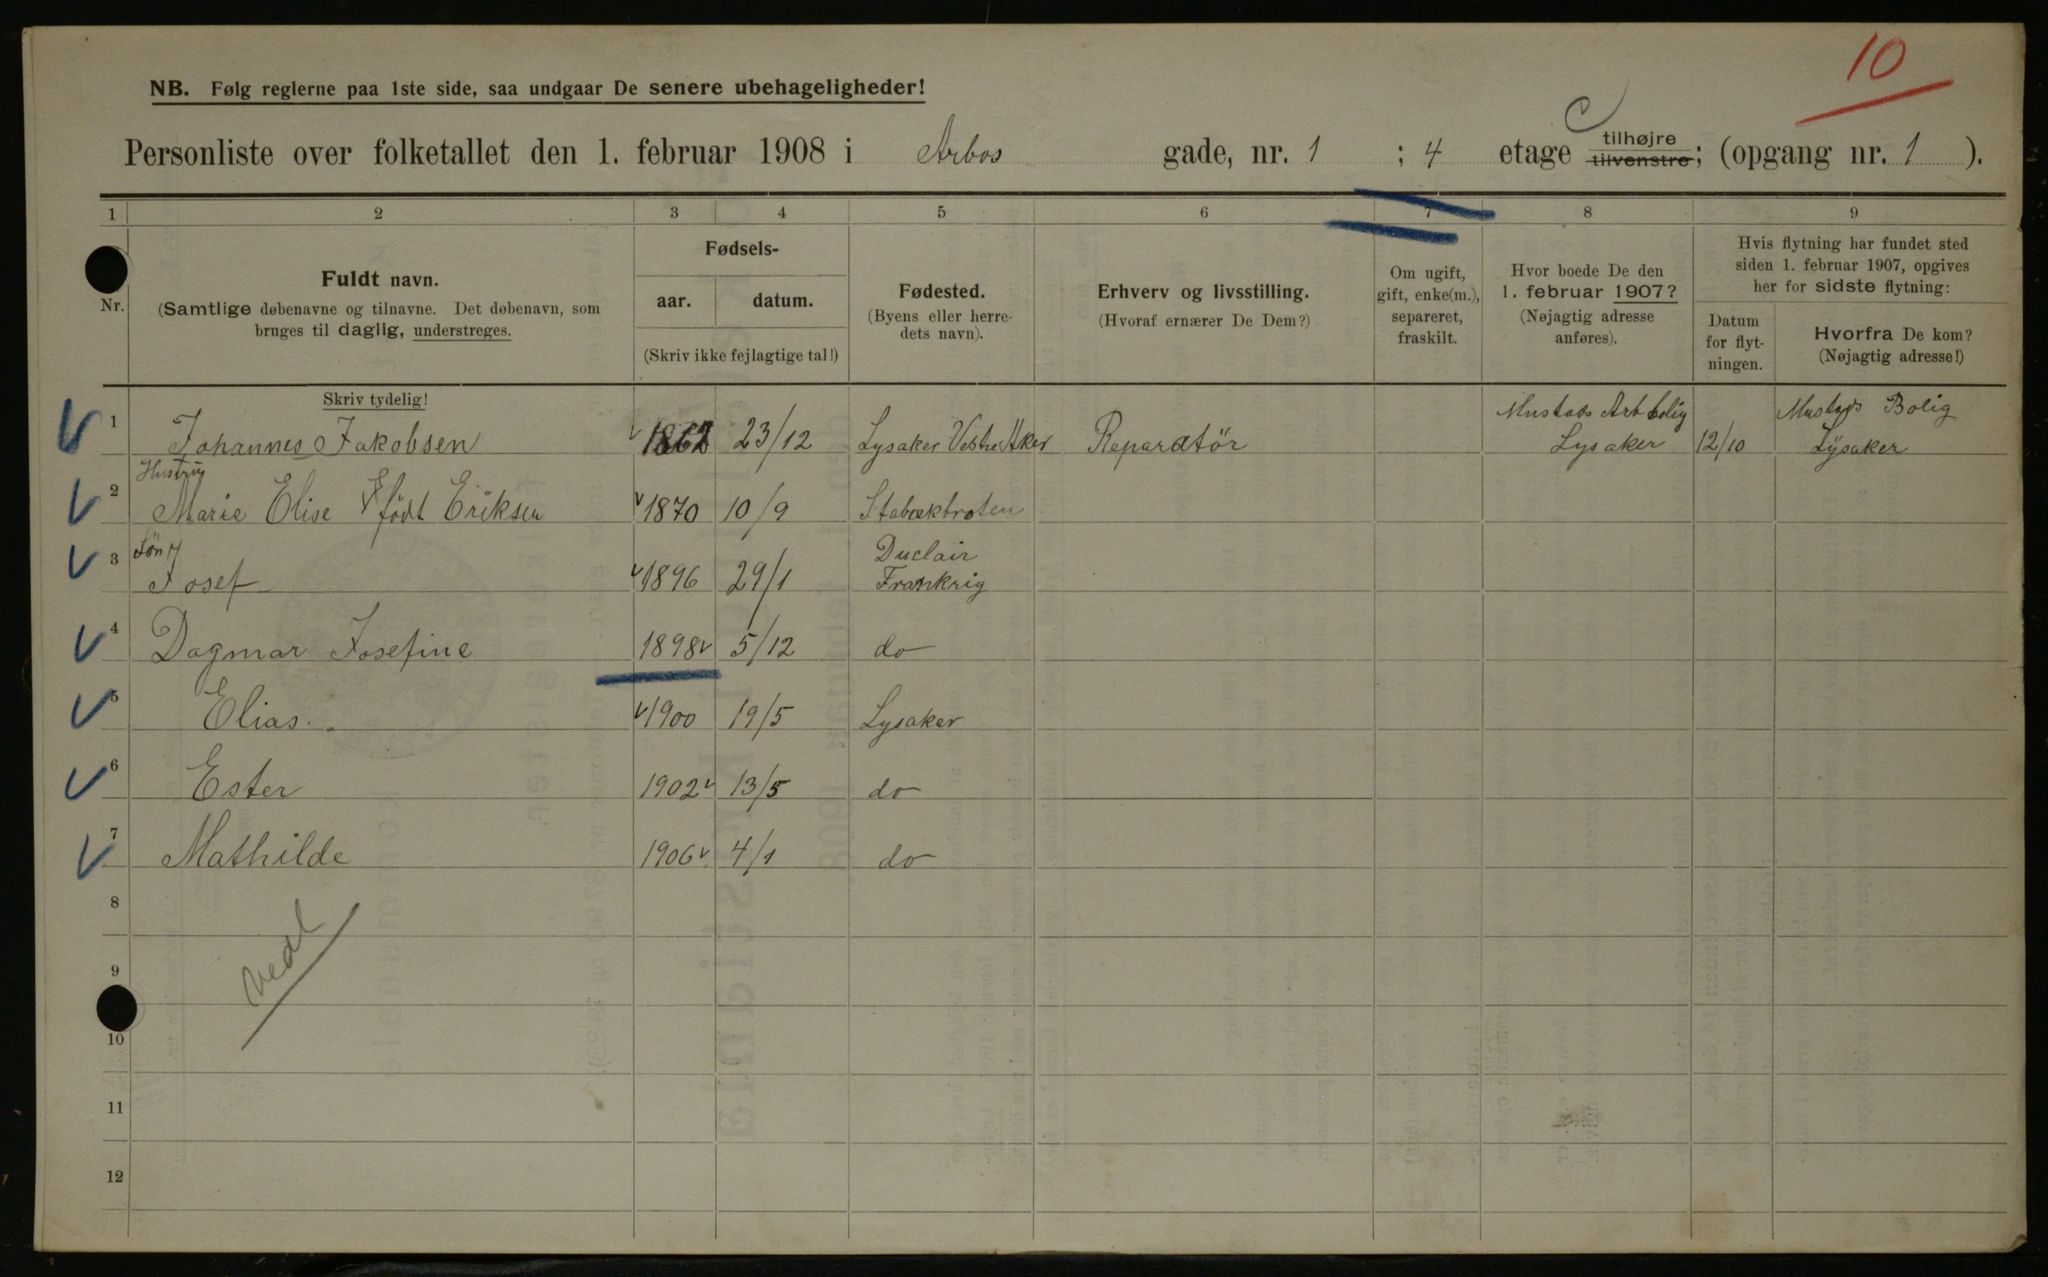 10
NB. Følg reglerne paa 1ste side, saa undgaar De senere ubehageligheder!
C
Personliste over folketallet den 1. februar 1908 i Arbos gade, nr. 1 ; 4 etage tilhøjre tilvenstre; (opgang nr. 1 ).
1 2 3 4 5 6 7 8 9
Nr.
Fuldt navn.
(Samtlige døbenavne og tilnavne. Det døbenavn, som
bruges til daglig, understreges.
Fødsels-
aar. datum.
(Skriv ikke fejlagtige tal!)
Fødested.
(Byens eller herre-
dets navn).
Erhverv og livsstilling.
(Hvoraf ernærer De Dem?)
Om ugift,
gift, enke(m.),
separeret,
fraskilt.
Hvor boede De den
1. februar 1907?
(Nøjagtig adresse
anføres).
Hvis flytning har fundet sted
siden 1. februar 1907, opgives
her for sidste flytning:
Datum
for flyt-
ningen.
Hvorfra De kom?
(Nøjagtig adresse!)
Skriv tydelig!
Mustads Arb bolig Mustads Bolig
1 Johannes Jakobsen 1867 23/12 Lysaker Vestre Aker Reparatör Lysaker 12/10 Lysaker
Hustru
2 Marie Elise født Eriksen 1870 10/9 Stabækbroten
Sön Duclair
3 Josef 1896 29/1 Frankrig
4 Dagmar Josefine 1898 5/12 do
5 Elias. 1900 19/5 Lysaker
6 Ester 1902 13/5 do
7 Mathilde 1906 4/1 do
8
9
10
11
12